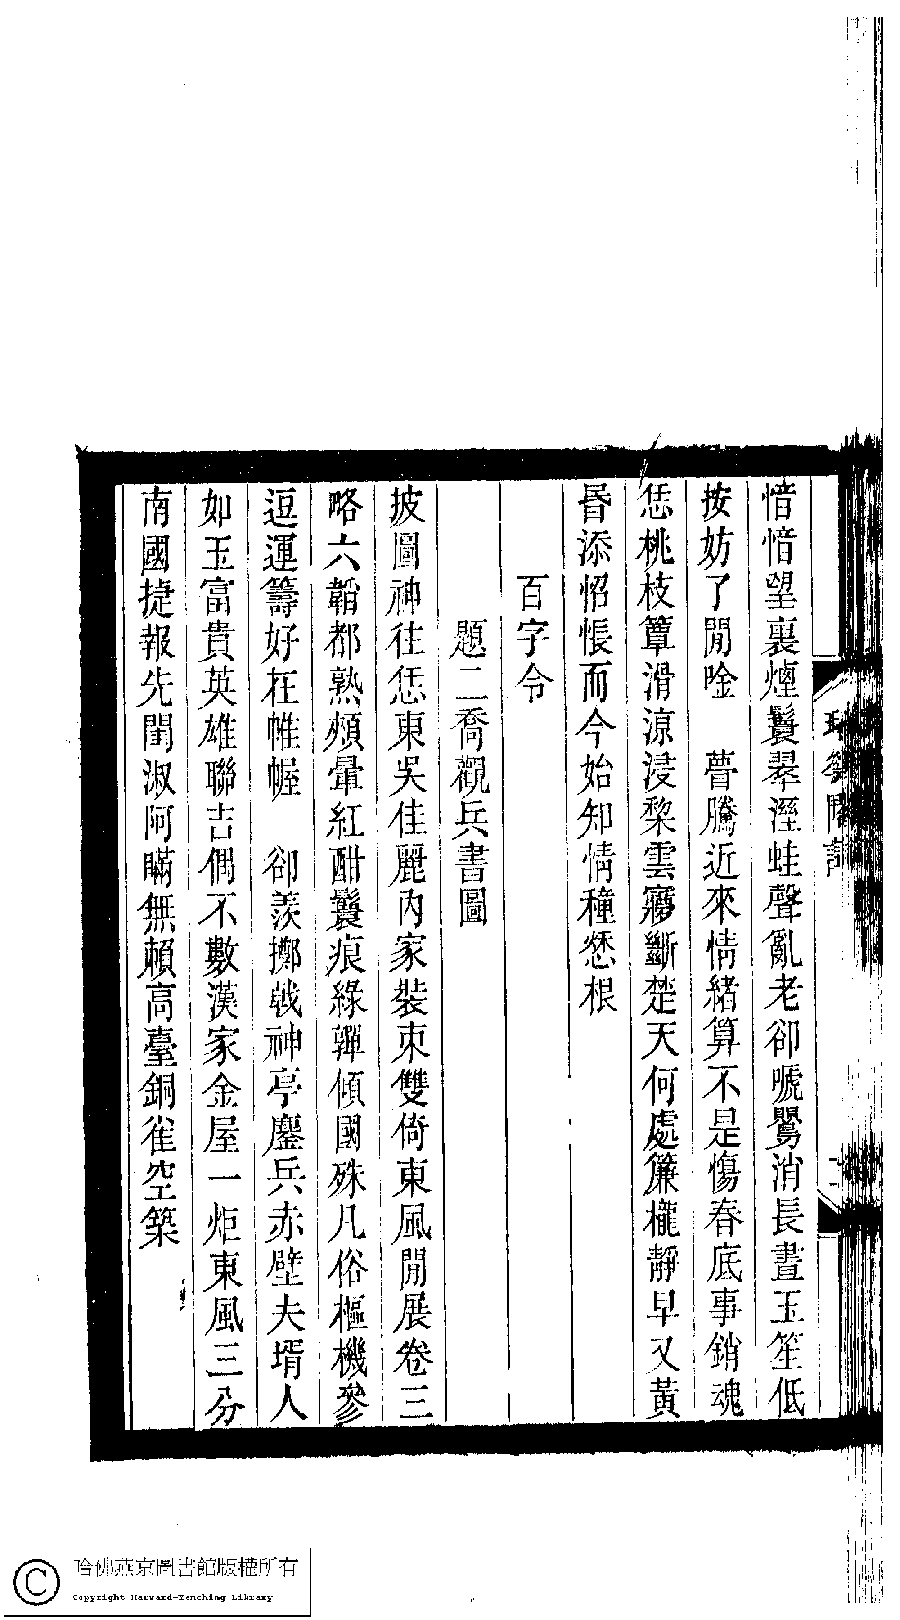 愔愔望裏煙鬟翠溼蛙聲亂老卻嗁鶯消長晝玉笙低
按妨了閒唫　瞢騰近來情緒算不是傷春底事銷魂
恁桃枝簟滑涼浸棃雲霧斷楚天何處簾櫳靜早又黃
昬添惂悵而今始知情種愁根
百字令
題二喬觀兵書圖
披圖神往恁東吳佳麗內家裝束雙倚東風閒展卷三
略六韜都熟頰暈紅酣鬟痕綠嚲傾國殊凡俗樞機參
逗運籌好在帷幄　卻羨擲戟神亭鏖兵赤壁夫壻人
如玉富貴英雄聯吉偶不數漢家金屋一炬東風三分
南國捷報先閨淑阿瞞無賴高臺銅雀空築
哈佛燕京圖書館版權所有
Copyright Harvard-Yenching Library